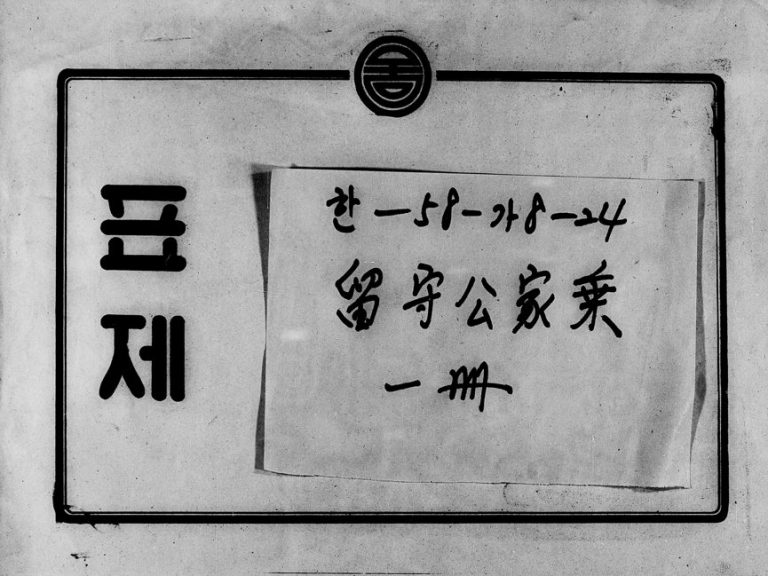 표제
한-58-가8-24
留守公家乘
一冊